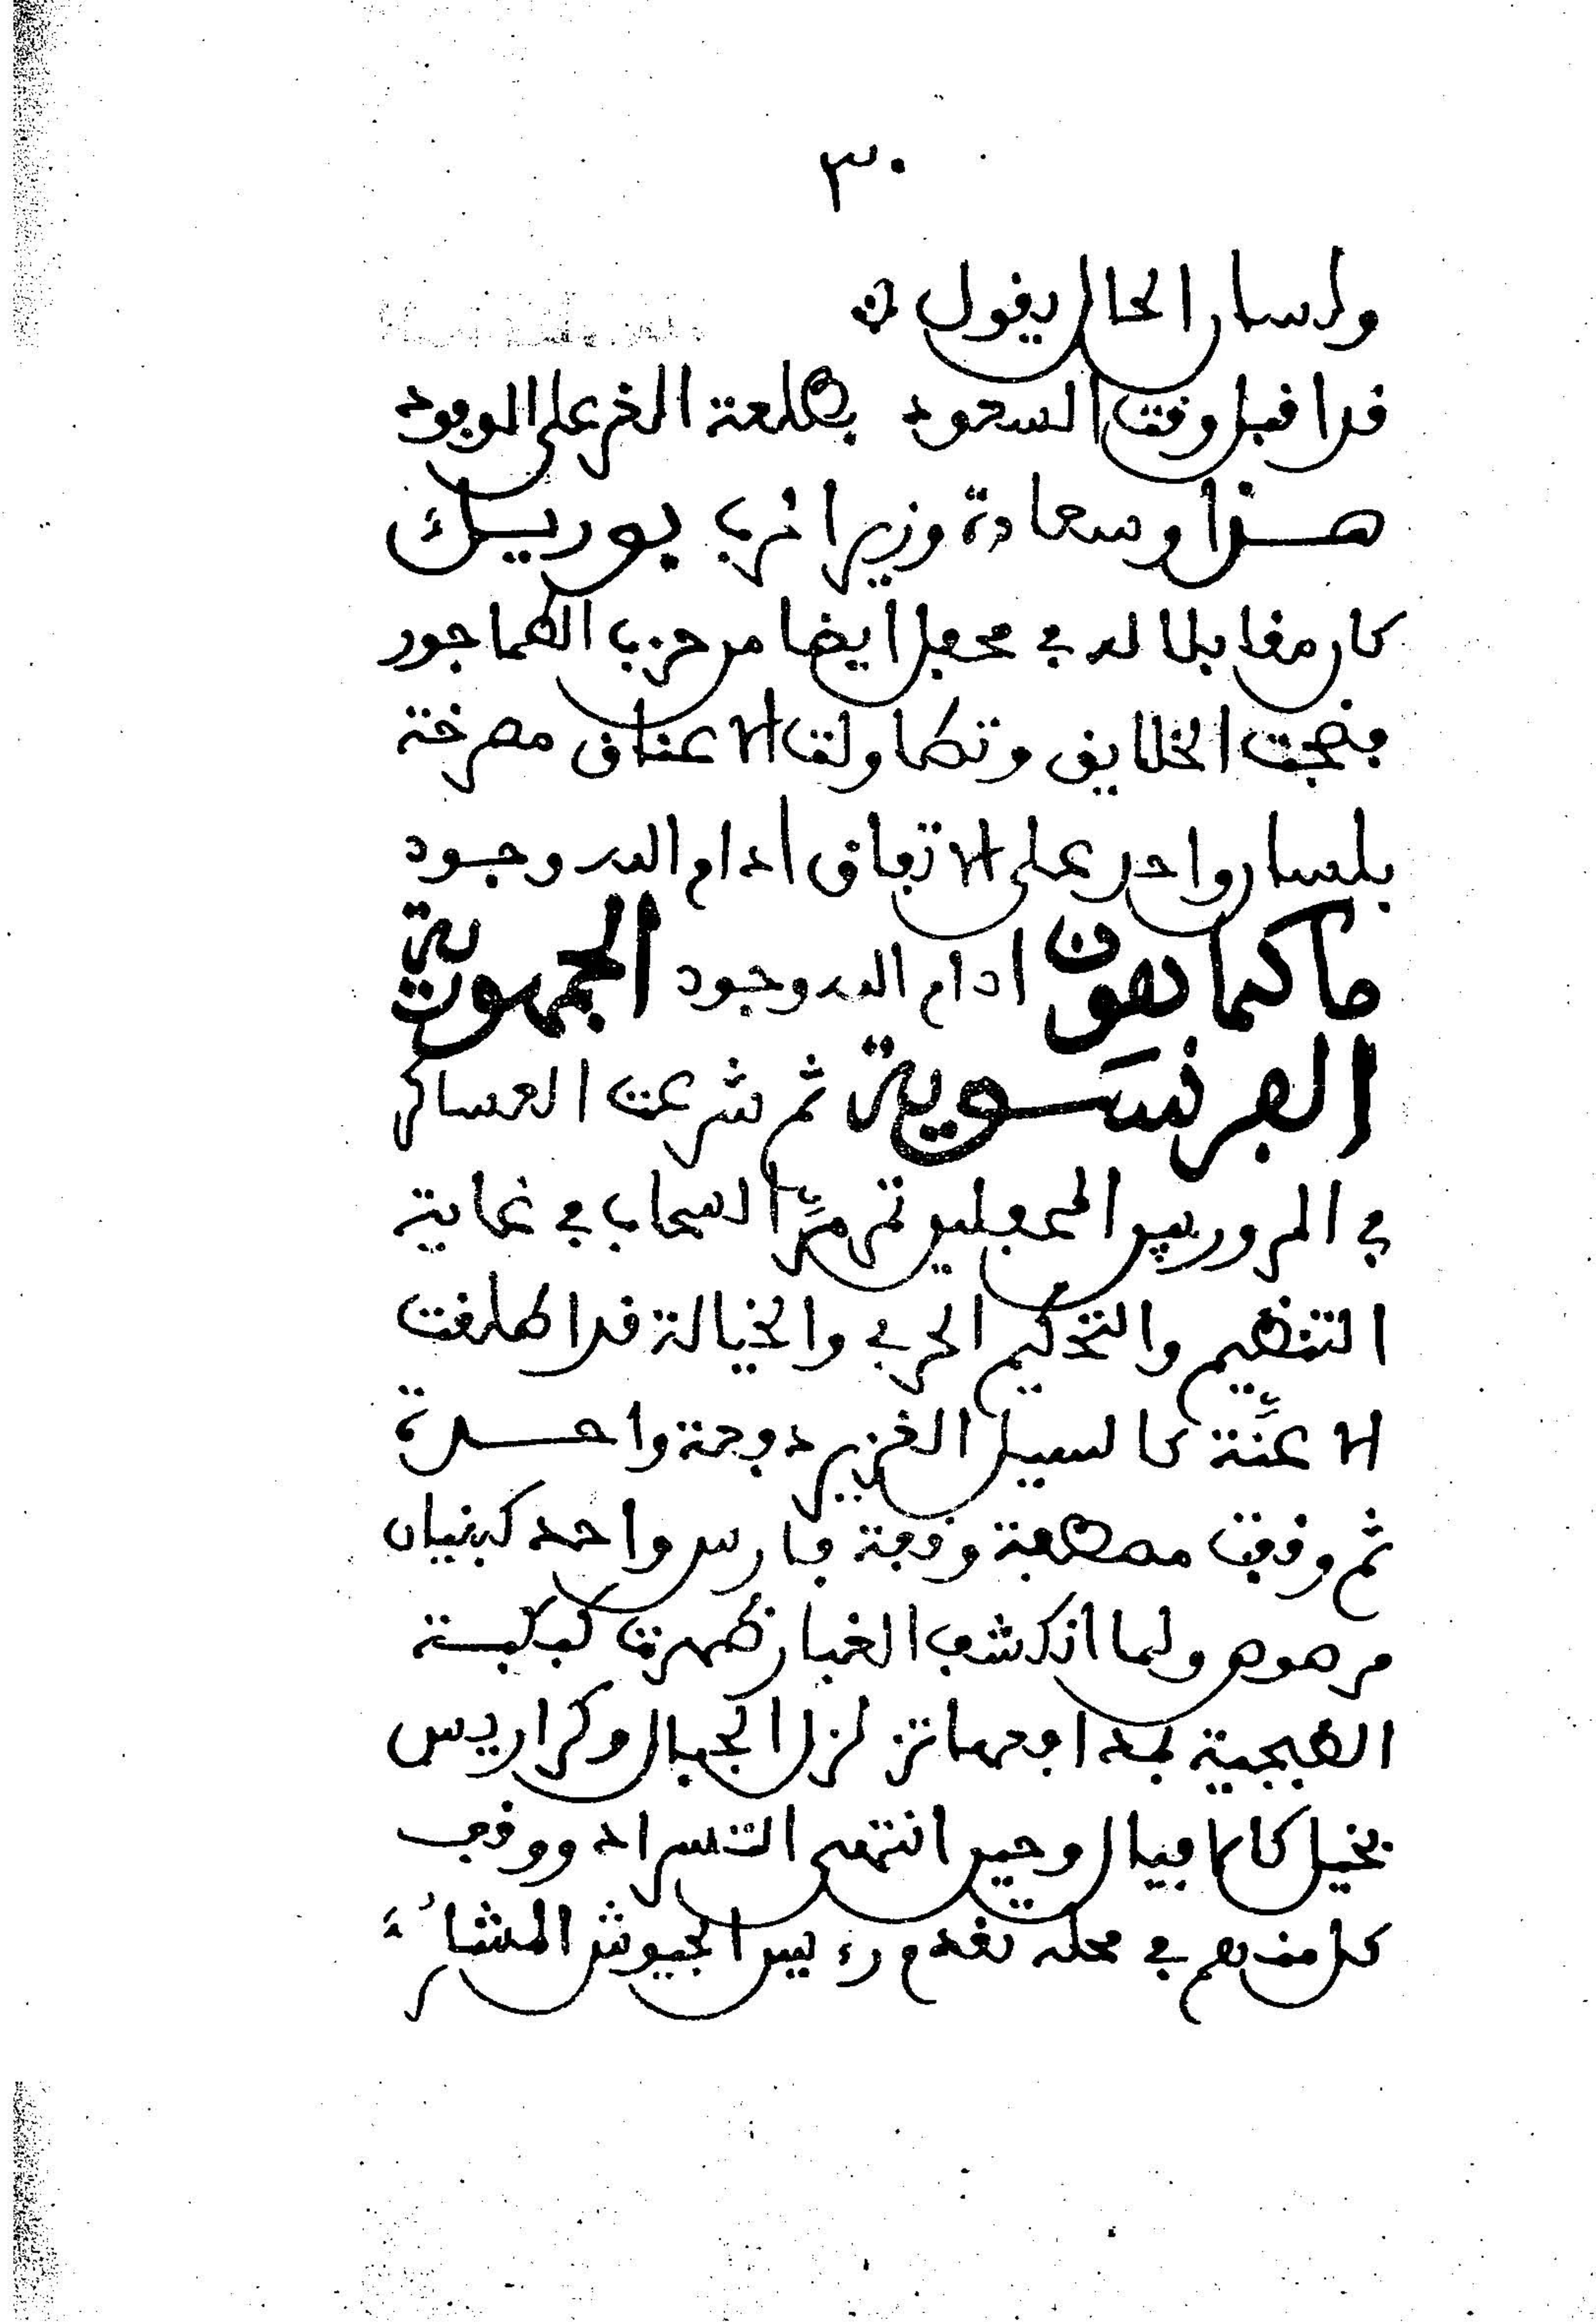 ٣٠
ولسان الحال يقول
قد اقبل وقت السعود بطلعة الغر على الوجود
هذا وسعادة وزير الحرب بوريل
كان مقابلا له في محفل ايضا من حزب الطماجور
فضجت الخلايق وتطاولت الاعناق مصرخة
بلسان واحد على الاتفاق ادام الله وجود
ماكماهون ادام الله وجود الجمهورية
الفرنسوية ثم شرعت العساكر
في المرور بين المحفلين تمر مرّ السحاب في غاية
التنظيم والتحكيم الحربي والخيالة قد اطلقت
الاعنّة كالسيل الغزير دفعة واحدة
ثم وقفت مصطفة وقفة فارس واحد كبنيان
مرصوص ولما انكشف الغبار ظهرت كبكبة
الطبجية بمدافعها تزلزل الجبال وكراريس
بخيل كالافيال وحين انتهى التسراد ووقف
كل منهم في محله تقدم رءيس الجيوش المشاۥء